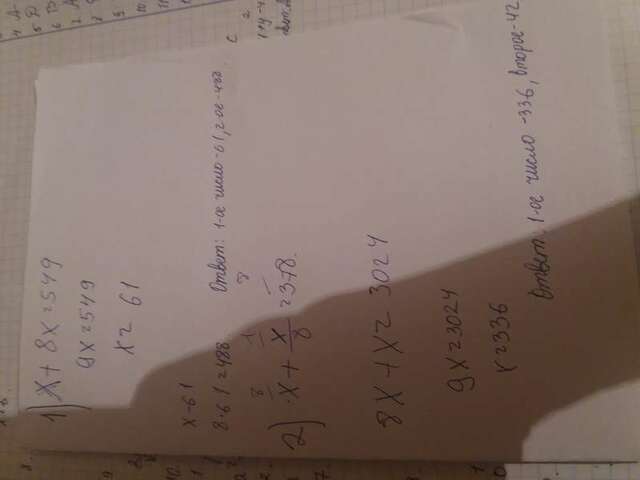 1) x + 8x = 549
9x = 549
x = 61
x - 61
8 · 61 = 488.
Ответ: 1-ое число - 61, 2-ое - 488.
2) x + x/8 = 378.
8x + x = 3024
9x = 3024
x = 336
Ответ: 1-ое число - 336, второе - 42